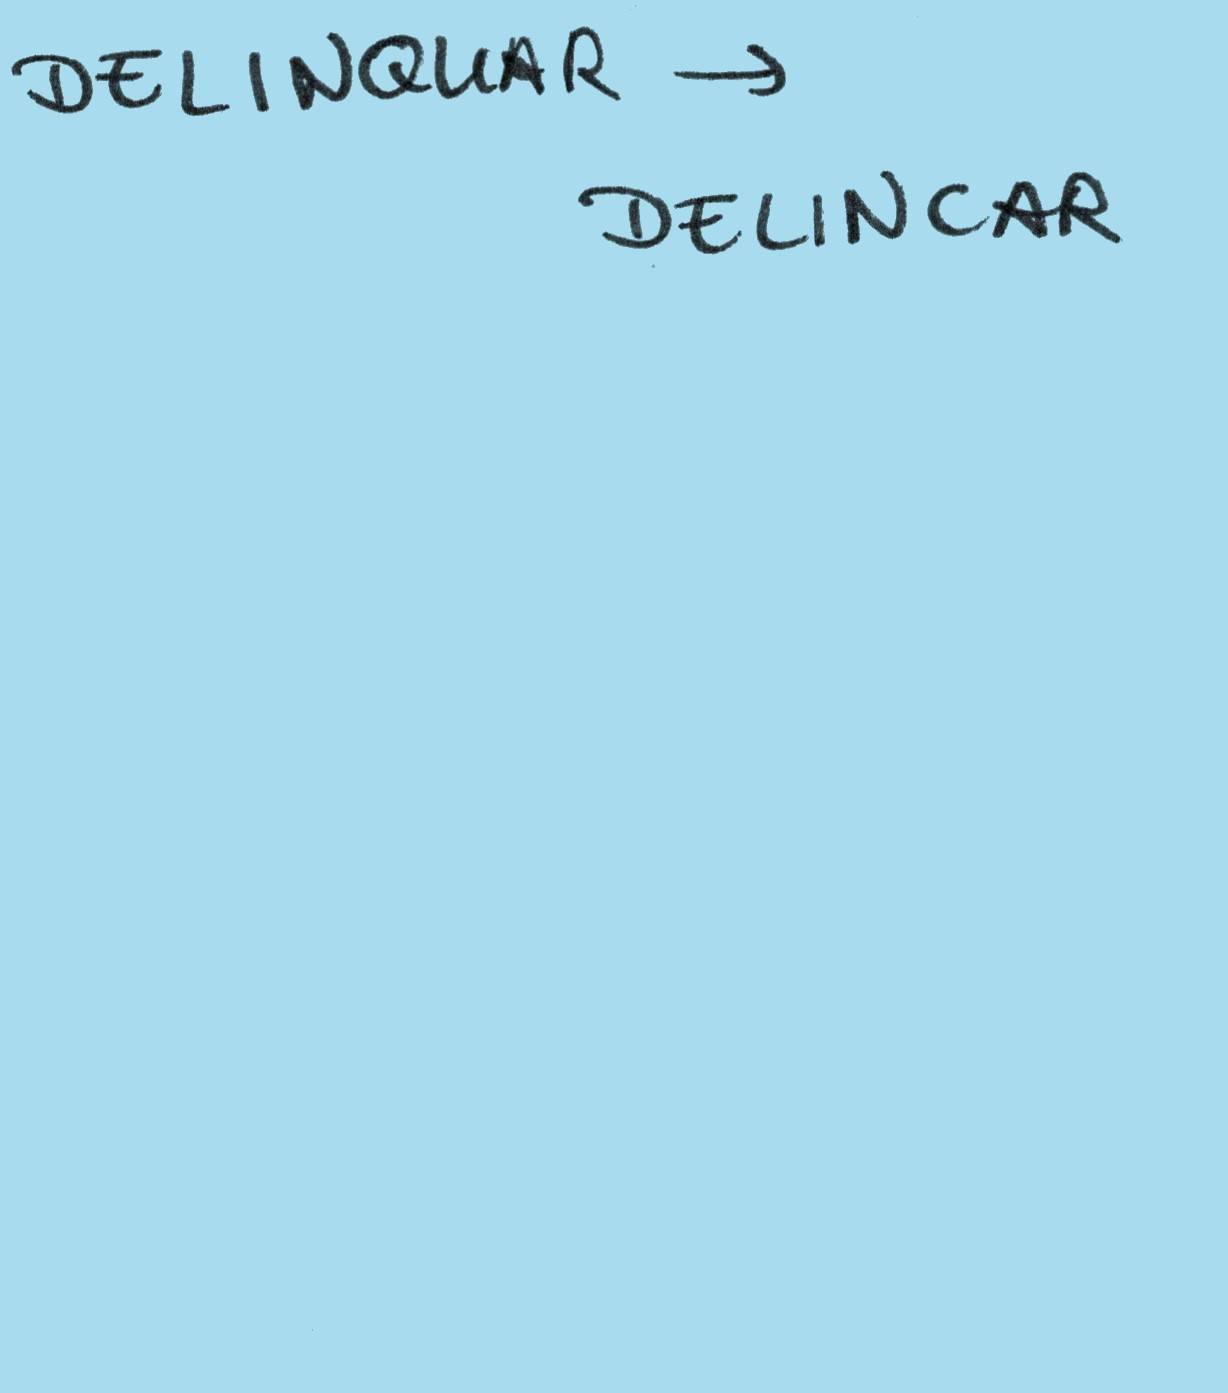 DELINQUAR →
DELINCAR